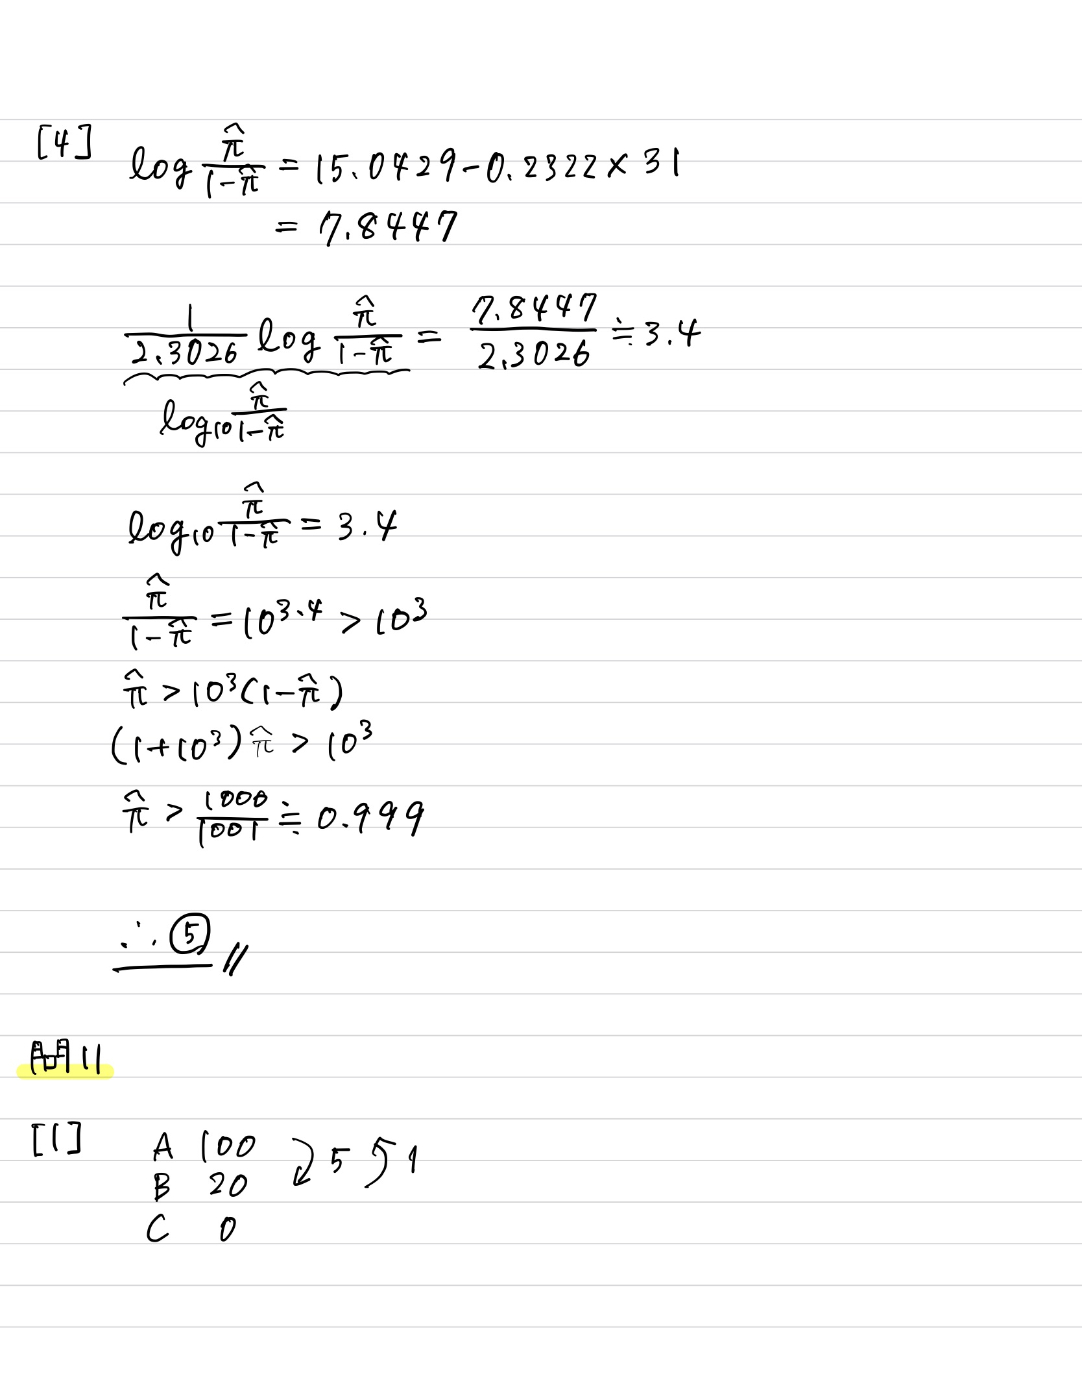 [4] log π̂/(1-π̂) = 15.0429-0.2322×31
= 7.8447
1/2.3026 log π̂/(1-π̂) = 7.8447/2.3026 ≒ 3.4
log₁₀ π̂/(1-π̂)
log₁₀ π̂/(1-π̂) = 3.4
π̂/(1-π̂) = 10^3.4 > 10³
π̂ > 10³(1-π̂)
(1+10³)π̂ > 10³
π̂ > 1000/1001 ≒ 0.999
∴ ⑤ //
問11
[1] A 100 5 1
B 20
C 0